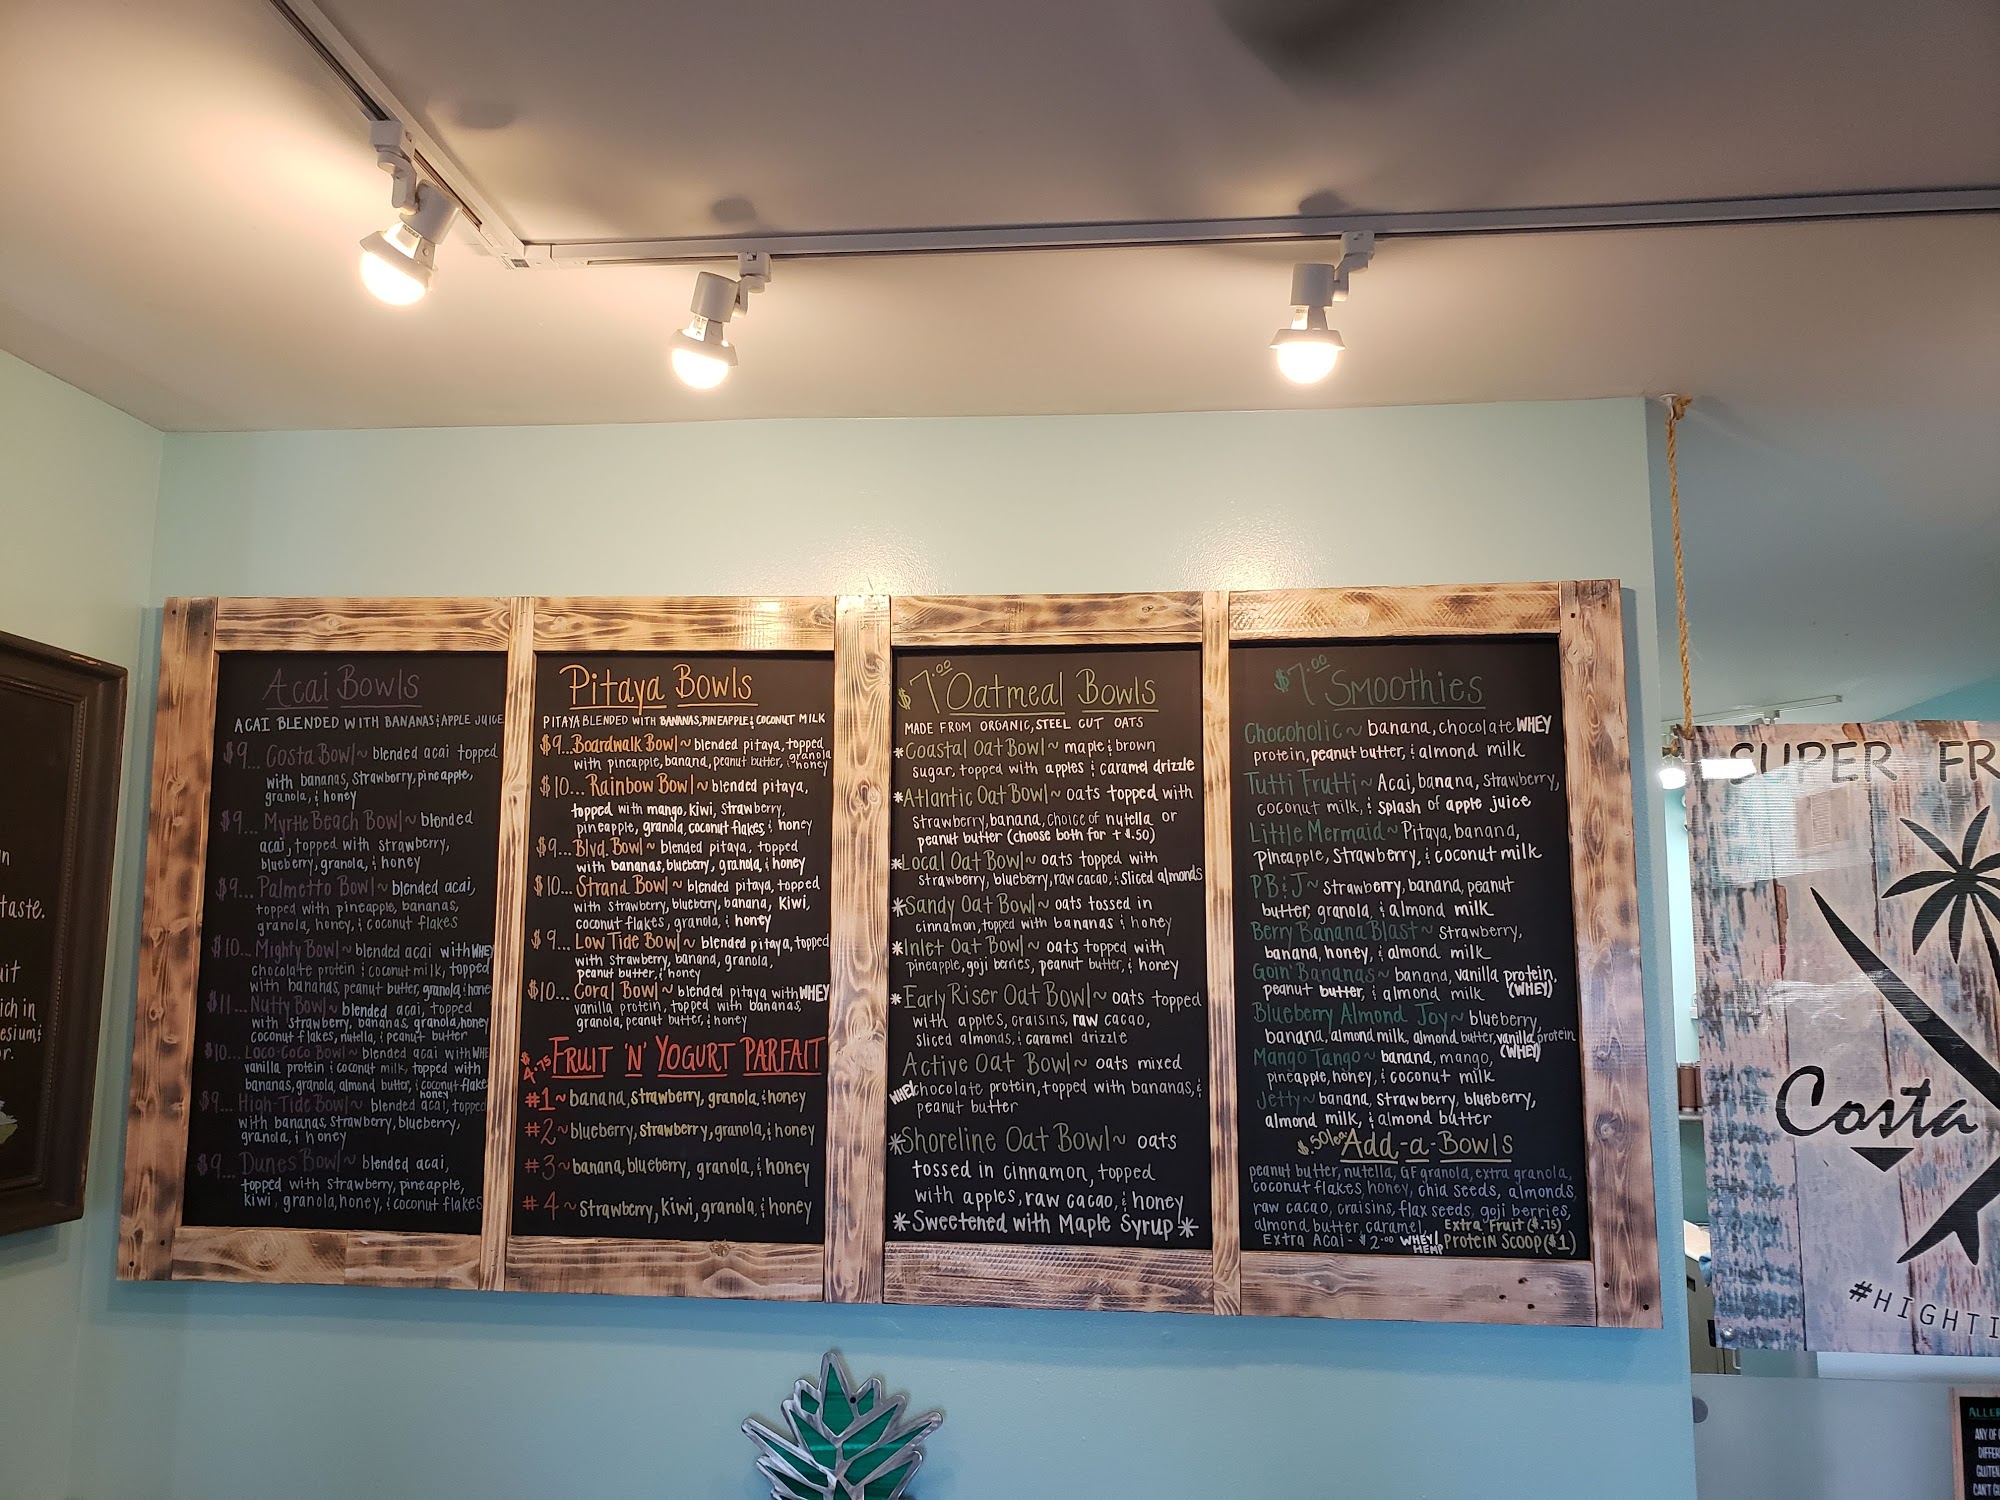 Acai Bowls
ACAI BLENDED WITH BANANAS & APPLE JUICE
$9... Costa Bowl ~ blended acai topped
with bananas, strawberry, pineapple,
granola, & honey
$9... Myrtle Beach Bowl ~ blended
acai, topped with strawberry,
blueberry, granola, & honey
$9... Palmetto Bowl ~ blended acai,
topped with pineapple, bananas,
granola, honey, & coconut flakes
$10... Mighty Bowl ~ blended acai with WHEY
chocolate protein & coconut milk, topped
with bananas, peanut butter, granola, & honey
$11... Nutty Bowl ~ blended acai, topped
with strawberry, bananas, granola, honey
coconut flakes, nutella, & peanut butter
$10... Loco-Coco Bowl ~ blended acai with WHE
vanilla protein & coconut milk, topped with
bananas, granola, almond butter, & coconut flakes
honey
$9... High-Tide Bowl ~ blended acai, topped
with bananas, strawberry, blueberry,
granola, & honey
$9... Dunes Bowl ~ blended acai,
topped with strawberry, pineapple,
kiwi, granola, honey, & coconut flakes
Pitaya Bowls
PITAYA BLENDED WITH BANANAS, PINEAPPLE & COCONUT MILK
$9... Boardwalk Bowl ~ blended pitaya, topped
with pineapple, banana, peanut butter, & granola
honey
$10... Rainbow Bowl ~ blended pitaya,
topped with mango, kiwi, strawberry,
pineapple, granola, coconut flakes & honey
$9... Blvd. Bowl ~ blended pitaya, topped
with bananas, blueberry, granola, & honey
$10... Strand Bowl ~ blended pitaya, topped
with strawberry, blueberry, banana, kiwi,
coconut flakes, granola, & honey
$9... Low Tide Bowl ~ blended pitaya, topped
with strawberry, banana, granola,
peanut butter, & honey
$10... Coral Bowl ~ blended pitaya with WHEY
vanilla protein, topped with bananas,
granola, peanut butter, & honey
$4.75 FRUIT 'N' YOGURT PARFAIT
#1 ~ banana, strawberry, granola, & honey
#2 ~ blueberry, strawberry, granola, & honey
#3 ~ banana, blueberry, granola, & honey
#4 ~ strawberry, kiwi, granola, & honey
$7.00 Oatmeal Bowls
MADE FROM ORGANIC, STEEL CUT OATS
*Coastal Oat Bowl ~ maple & brown
sugar, topped with apples & caramel drizzle
*Atlantic Oat Bowl ~ oats topped with
strawberry, banana, choice of nutella or
peanut butter (choose both for + $.50)
*Local Oat Bowl ~ oats topped with
strawberry, blueberry, raw cacao, & sliced almonds
*Sandy Oat Bowl ~ oats tossed in
cinnamon, topped with bananas & honey
*Inlet Oat Bowl ~ oats topped with
pineapple, goji berries, peanut butter, & honey
*Early Riser Oat Bowl ~ oats topped
with apples, craisins, raw cacao,
sliced almonds, & caramel drizzle
Active Oat Bowl ~ oats mixed
WHEY chocolate protein, topped with bananas, &
peanut butter
*Shoreline Oat Bowl ~ oats
tossed in cinnamon, topped
with apples, raw cacao, & honey
*Sweetened with Maple Syrup*
$7.00 Smoothies
Chocoholic ~ banana, chocolate WHEY
protein, peanut butter, & almond milk
Tutti Frutti ~ Acai, banana, strawberry,
coconut milk, & splash of apple juice
Little Mermaid ~ Pitaya, banana,
pineapple, strawberry, & coconut milk
PB & J ~ strawberry, banana, peanut
butter, granola, & almond milk
Berry Banana Blast ~ strawberry,
banana, honey, & almond milk
Goin' Bananas ~ banana, vanilla protein,
peanut butter, & almond milk (WHEY)
Blueberry Almond Joy ~ blueberry,
banana, almond milk, almond butter, vanilla protein
(WHEY)
Mango Tango ~ banana, mango,
pineapple, honey, & coconut milk
Jetty ~ banana, strawberry, blueberry,
almond milk, & almond butter
$.50/ea Add-a-Bowls
peanut butter, nutella, GF granola, extra granola,
coconut flakes, honey, chia seeds, almonds,
raw cacao, craisins, flax seeds, goji berries,
almond butter, caramel, Extra Fruit ($.75)
Extra Acai - $2.00 WHEY/HEMP Protein Scoop ($1)
SUPER FR
Costa
#HIGHTI
taste.
ich in
ALLE
ANY OF
DIFFER
GLUTEN
CAN'T G